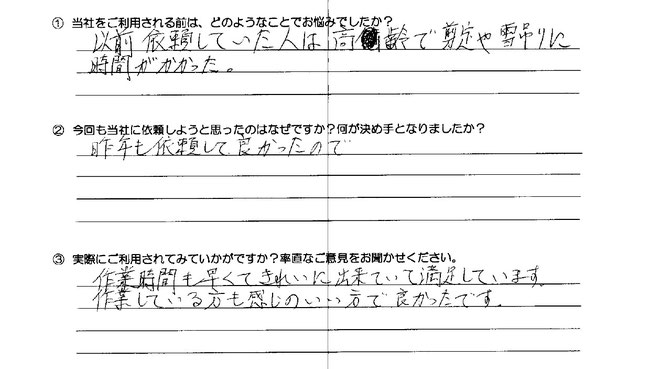 ① 当社をご利用される前は、どのようなことでお悩みでしたか？
以前依頼していた人は高齢で剪定や雪吊りに
時間がかかった。
② 今回も当社に依頼しようと思ったのはなぜですか？何が決め手となりましたか？
昨年も依頼して良かったので
③ 実際にご利用されてみていかがですか？率直なご意見をお聞かせください。
作業時間も早くてきれいに出来ていて満足しています。
作業している方も感じのいい方で良かったです。